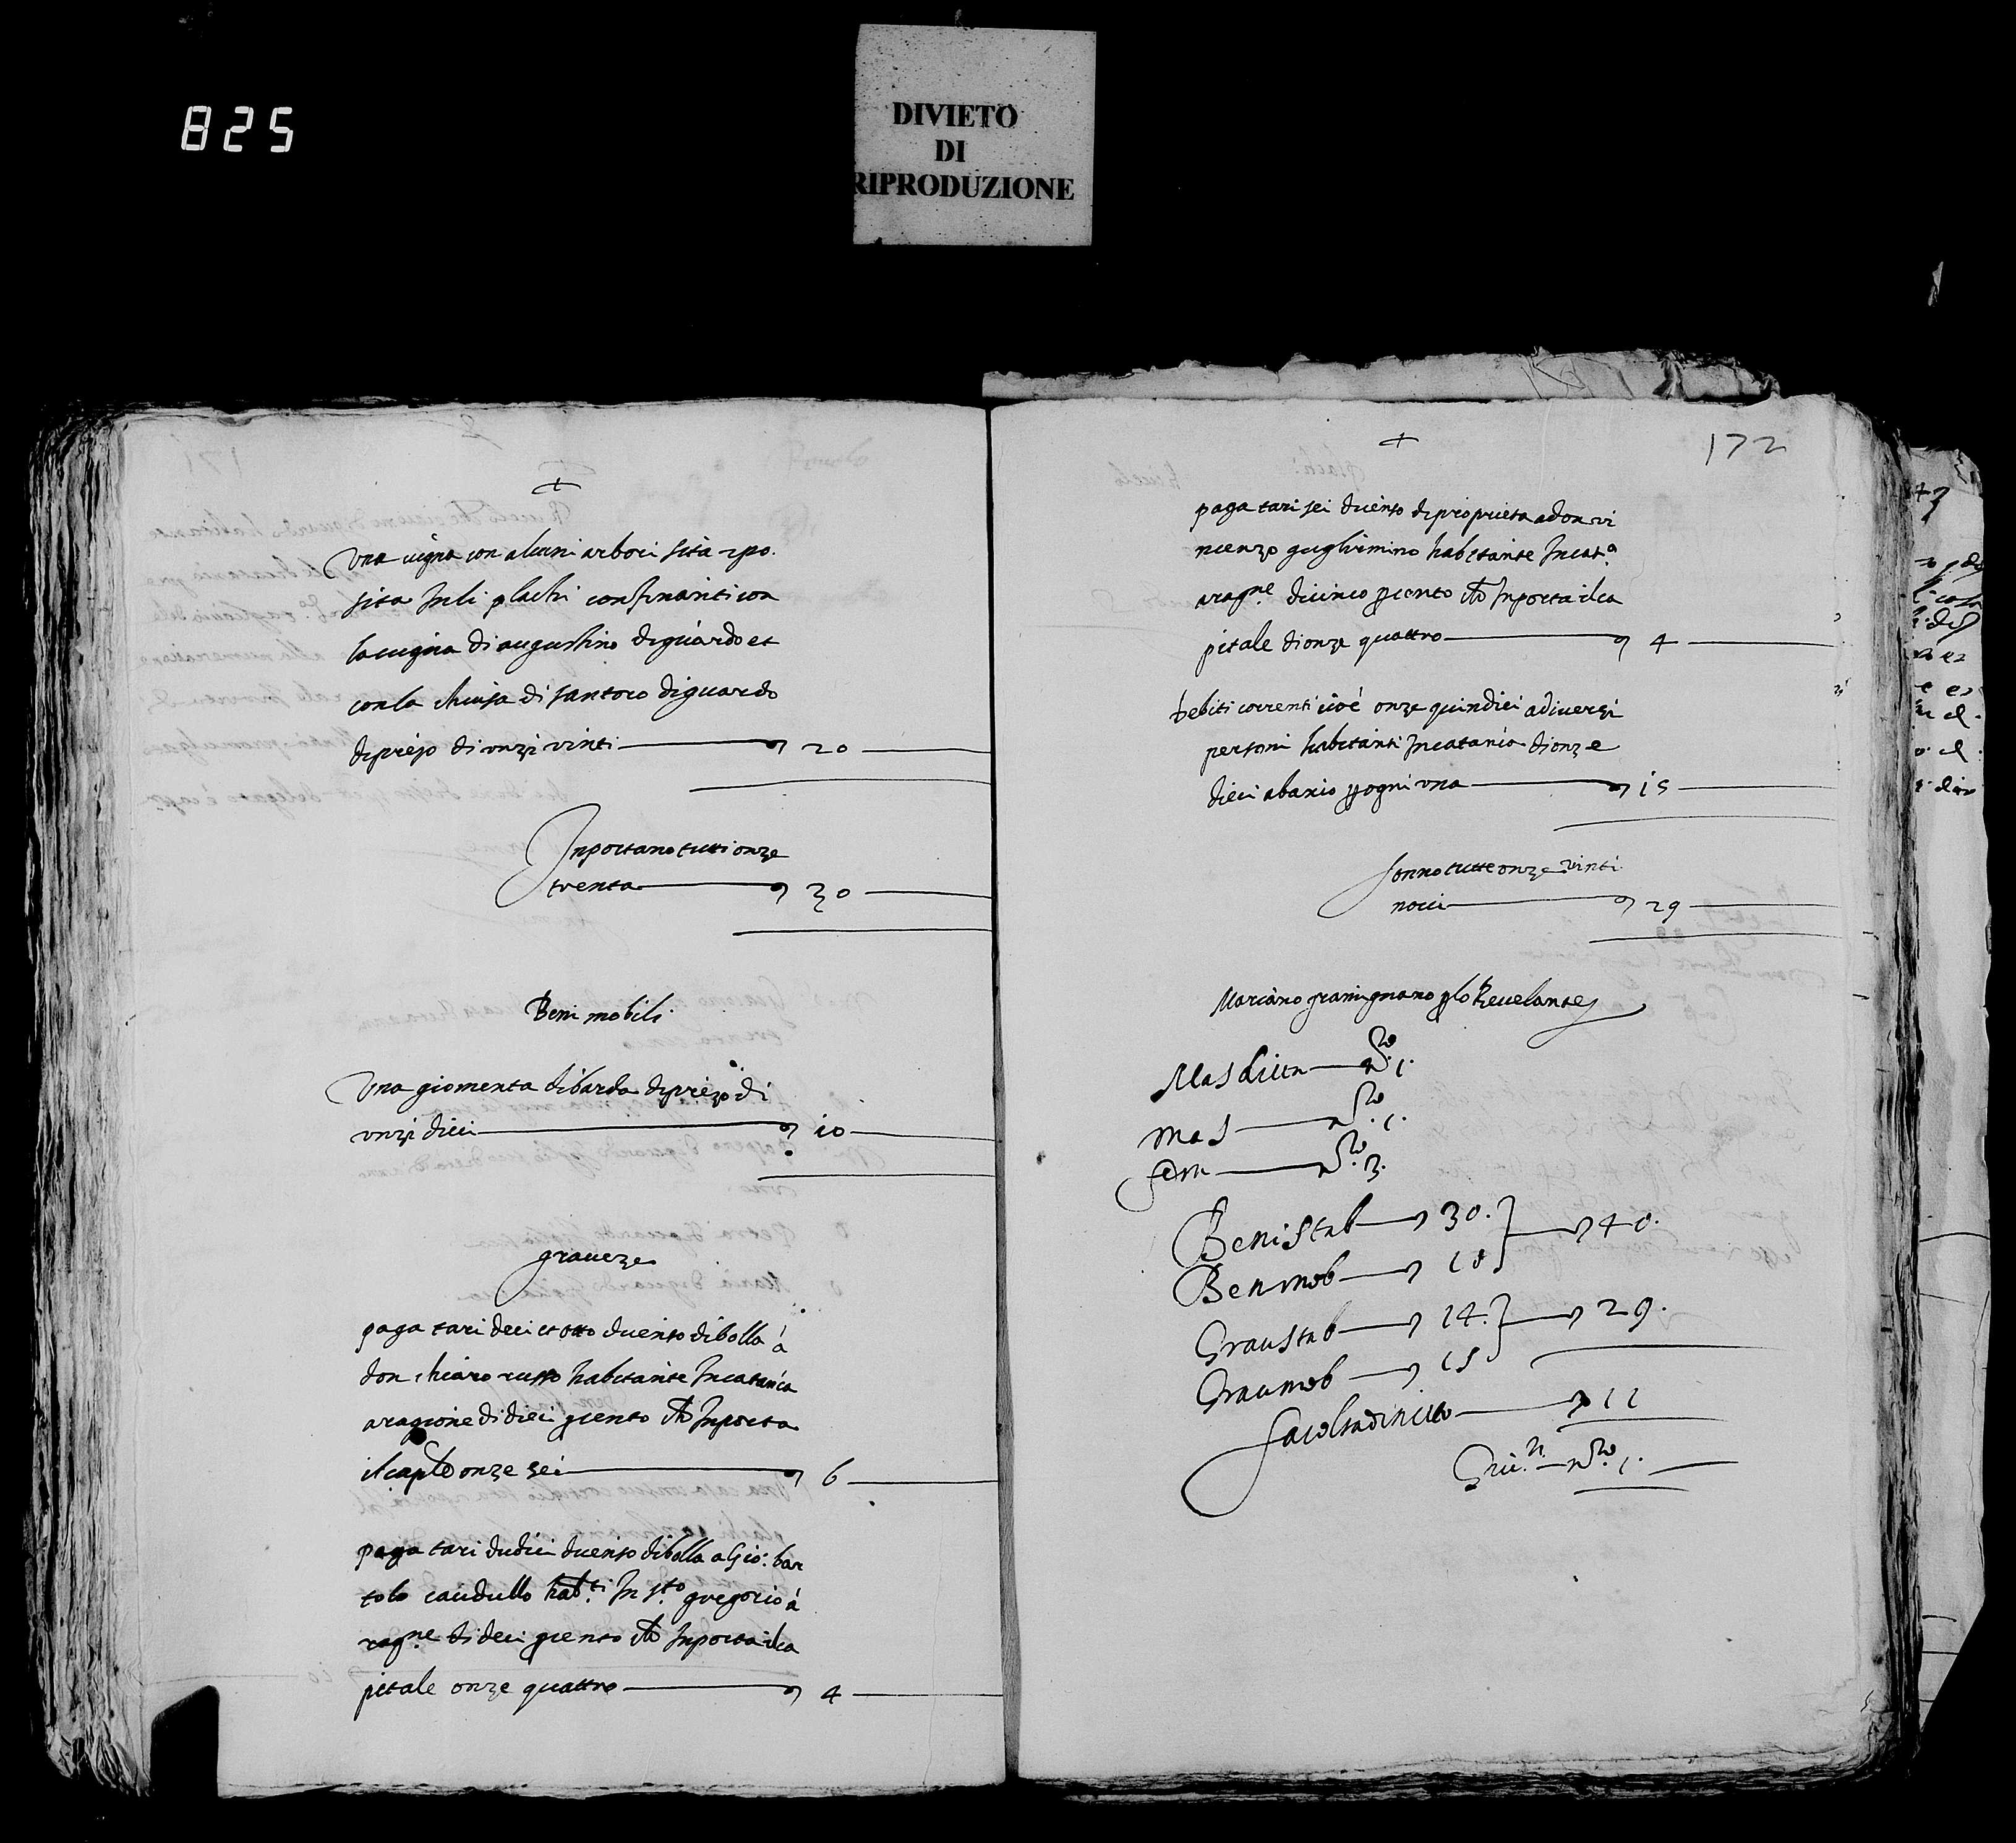 825
DIVIETO
DI
RIPRODUZIONE
+
Una vigna con alcuni arbori sita et po
sita in li plachi confinanti con
la vigna di augustino diguardo et
con la chiusa di santoro diguardo
di prezo di unzi vinti 20
Inportano tutti onze
trenta 30
Beni mobili
Una giomenta di barda di prezo di
unzi dieci 10
graveze
paga tari deci et otto di cento di bolla á
don chiaro russo habitante in catania
a ragione di dieci per cento che inporta
il caple onze sei 6
paga tari dudici di cento di bolla a Gio: bar
tolo caudullo hab.ti in s.to gregorio á
rag.ne di deci per cento che inporta il ca
pitale onze quattro 4
+
172
paga tari sei di cento di proprieta a don vi
ncenzo guglirmino habitante in cat.a
a rag.ne di cinco per cento che inporta il ca
pitale di onze quattro 4
debiti correnti cioè onze quindici a diversi
personi habitanti in catania di onze
dieci a bascio per ogni una 15
sonno tutte onze vinti
novi 29
Mariano gramignano per lo Revelante
Mas di etta n.ro 1.
mas n.ro 1.
fem n.ro 3.
Beni Stab 30. 40.
Ben mob 10
Grau Stab 14. 29.
Grau mob 15
facolta di netto 11
n.ro 1.